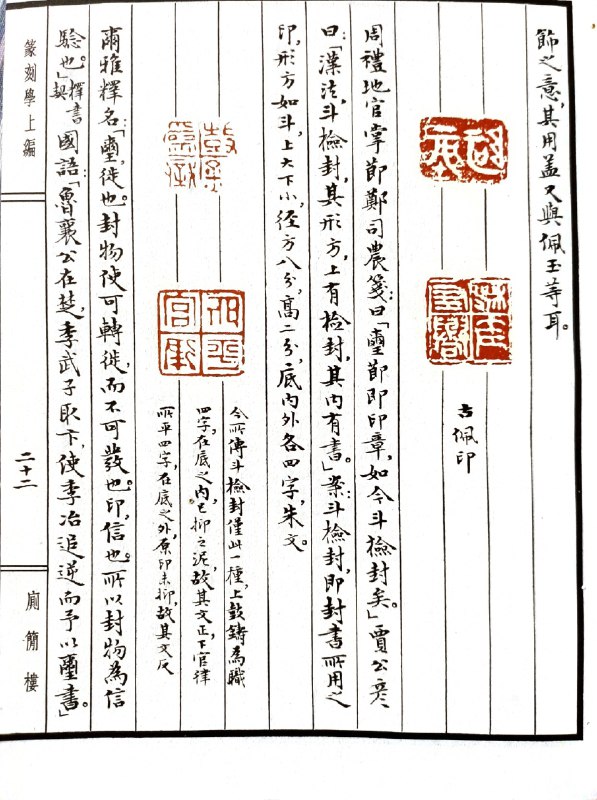 飾之意，其用蓋又與佩玉等耳。
古佩印
周禮地官掌節鄭司農箋曰：「璽節即印章，如今斗檢封矣。」賈公彥
曰：「漢法，斗檢封，其形方，上有檢封，其內有書。」案：斗檢封，即封書所用之
印，形方如斗，上大下小，徑方八分，高二分，底內外各四字，朱文。
鼓鑄為職
官律所平
今所傳斗檢封僅此一種，上鼓鑄為職
四字，在底之內，已抑之泥，故其文正，下官律
所平四字，在底之外，原印未抑，故其文反
爾雅釋名：「璽，徙也。封物使可轉徙，而不可發也。印，信也。所以封物為信
驗也。」釋書契 國語：「魯襄公在楚，季武子取卞，使季冶追逆而予以璽書。」
篆刻學上編
二十二
廁簡樓